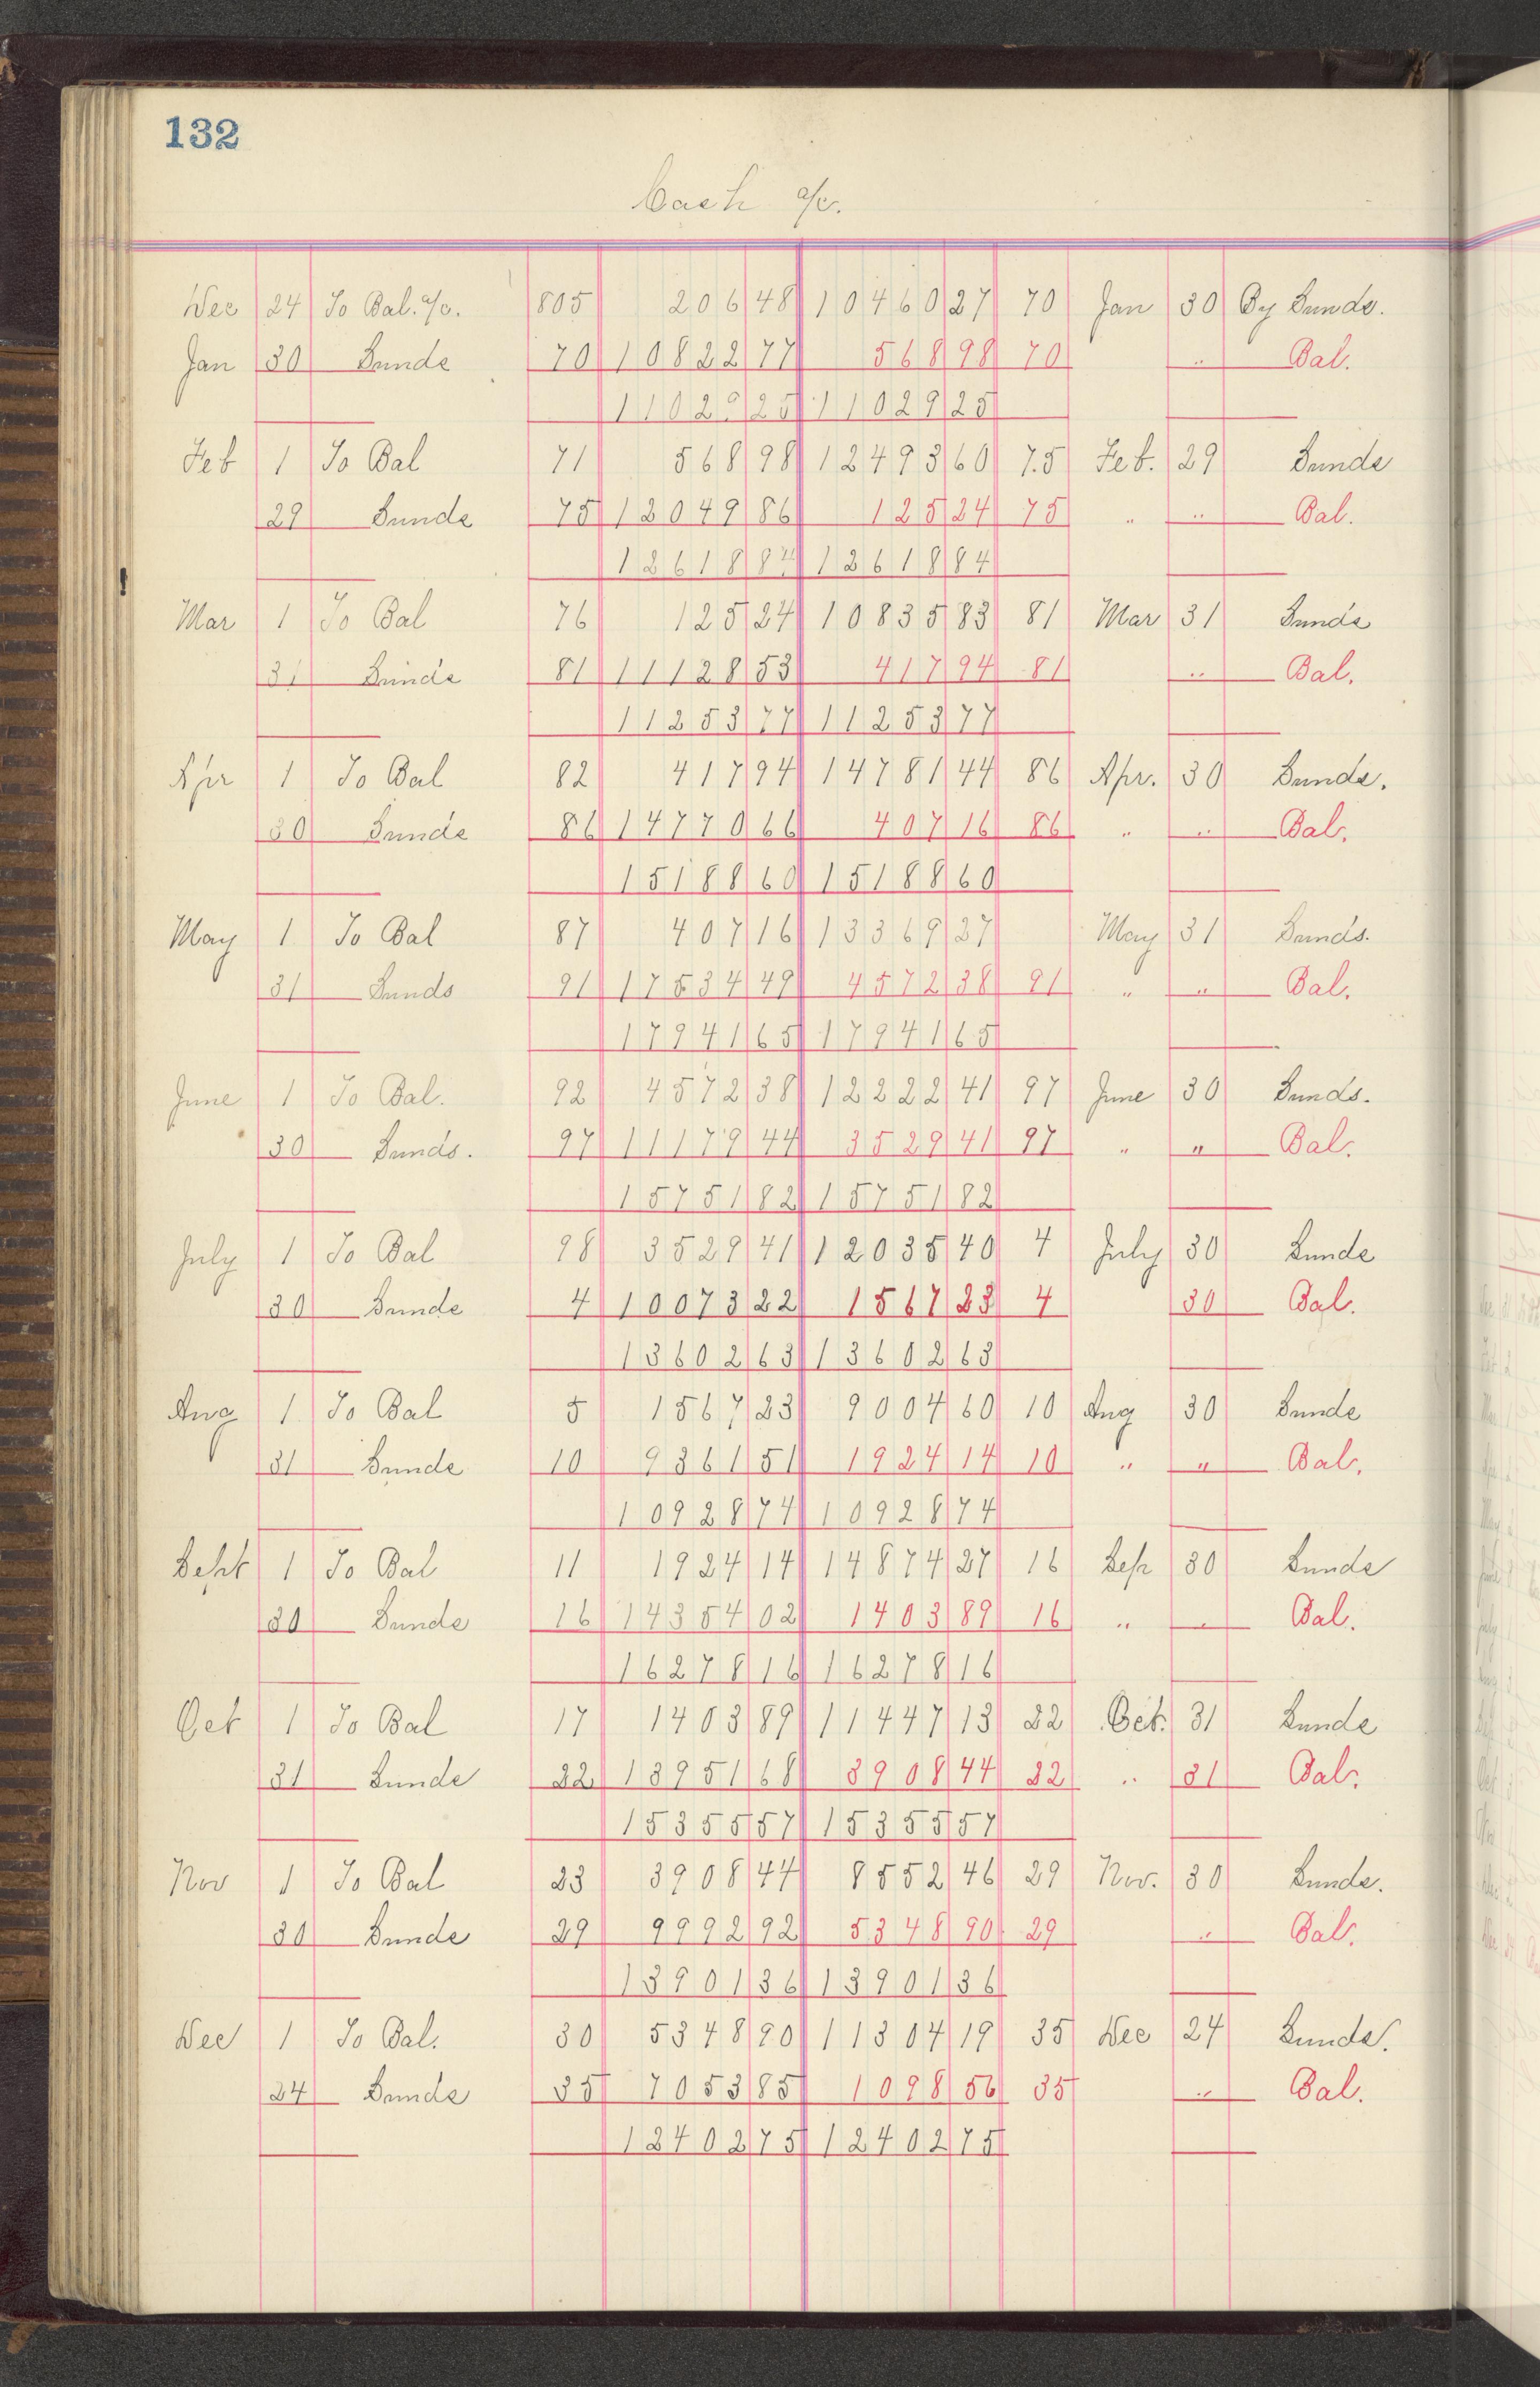 132
Cash a/c.
Dec 24 To Bal. a/c. 805 206 48 10460 27 70 Jan 30 By Sunds.
Jan 30 Sunds 70 10822 77 568 98 70 " Bal.
11029 25 11029 25
Feb 1 To Bal 71 568 98 12493 60 75 Feb. 29 Sunds
29 Sunds 75 12049 86 125 24 75 " " Bal.
12618 84 12618 84
Mar 1 To Bal 76 125 24 10835 83 81 Mar 31 Sund's
31 Sund's 81 11128 53 417 94 81 " Bal.
11253 77 11253 77
Apr 1 To Bal 82 417 94 14781 44 86 Apr. 30 Sunds.
30 Sunds 86 14770 66 407 16 86 " " Bal.
15188 60 15188 60
May 1 To Bal 87 407 16 13369 27 May 31 Sund's.
31 Sunds 91 17534 49 4572 38 91 " " Bal.
17941 65 17941 65
June 1 To Bal. 92 4572 38 12222 41 97 June 30 Sunds.
30 Sunds. 97 11179 44 3529 41 97 " " Bal.
15751 82 15751 82
July 1 To Bal 98 3529 41 12035 40 4 July 30 Sunds
30 Sunds 4 10073 22 1567 23 4 30 Bal.
13602 63 13602 63
Aug 1 To Bal 5 1567 23 9004 60 10 Aug 30 Sunds
31 Sunds 10 9361 51 1924 14 10 " " Bal.
10928 74 10928 74
Sept 1 To Bal 11 1924 14 14874 27 16 Sep 30 Sunds
30 Sunds 16 14354 02 1403 89 16 " " Bal.
16278 16 16278 16
Oct 1 To Bal 17 1403 89 11447 13 22 Oct. 31 Sunds
31 Sunds 22 13951 68 3908 44 22 " 31 Bal.
15355 57 15355 57
Nov 1 To Bal 23 3908 44 8552 46 29 Nov. 30 Sunds.
30 Sunds 29 9992 92 5348 90 29 " Bal.
13901 36 13901 36
Dec 1 To Bal. 30 5348 90 11304 19 35 Dec 24 Sunds.
24 Sunds 35 7053 85 1098 56 35 " Bal.
12402 75 12402 75